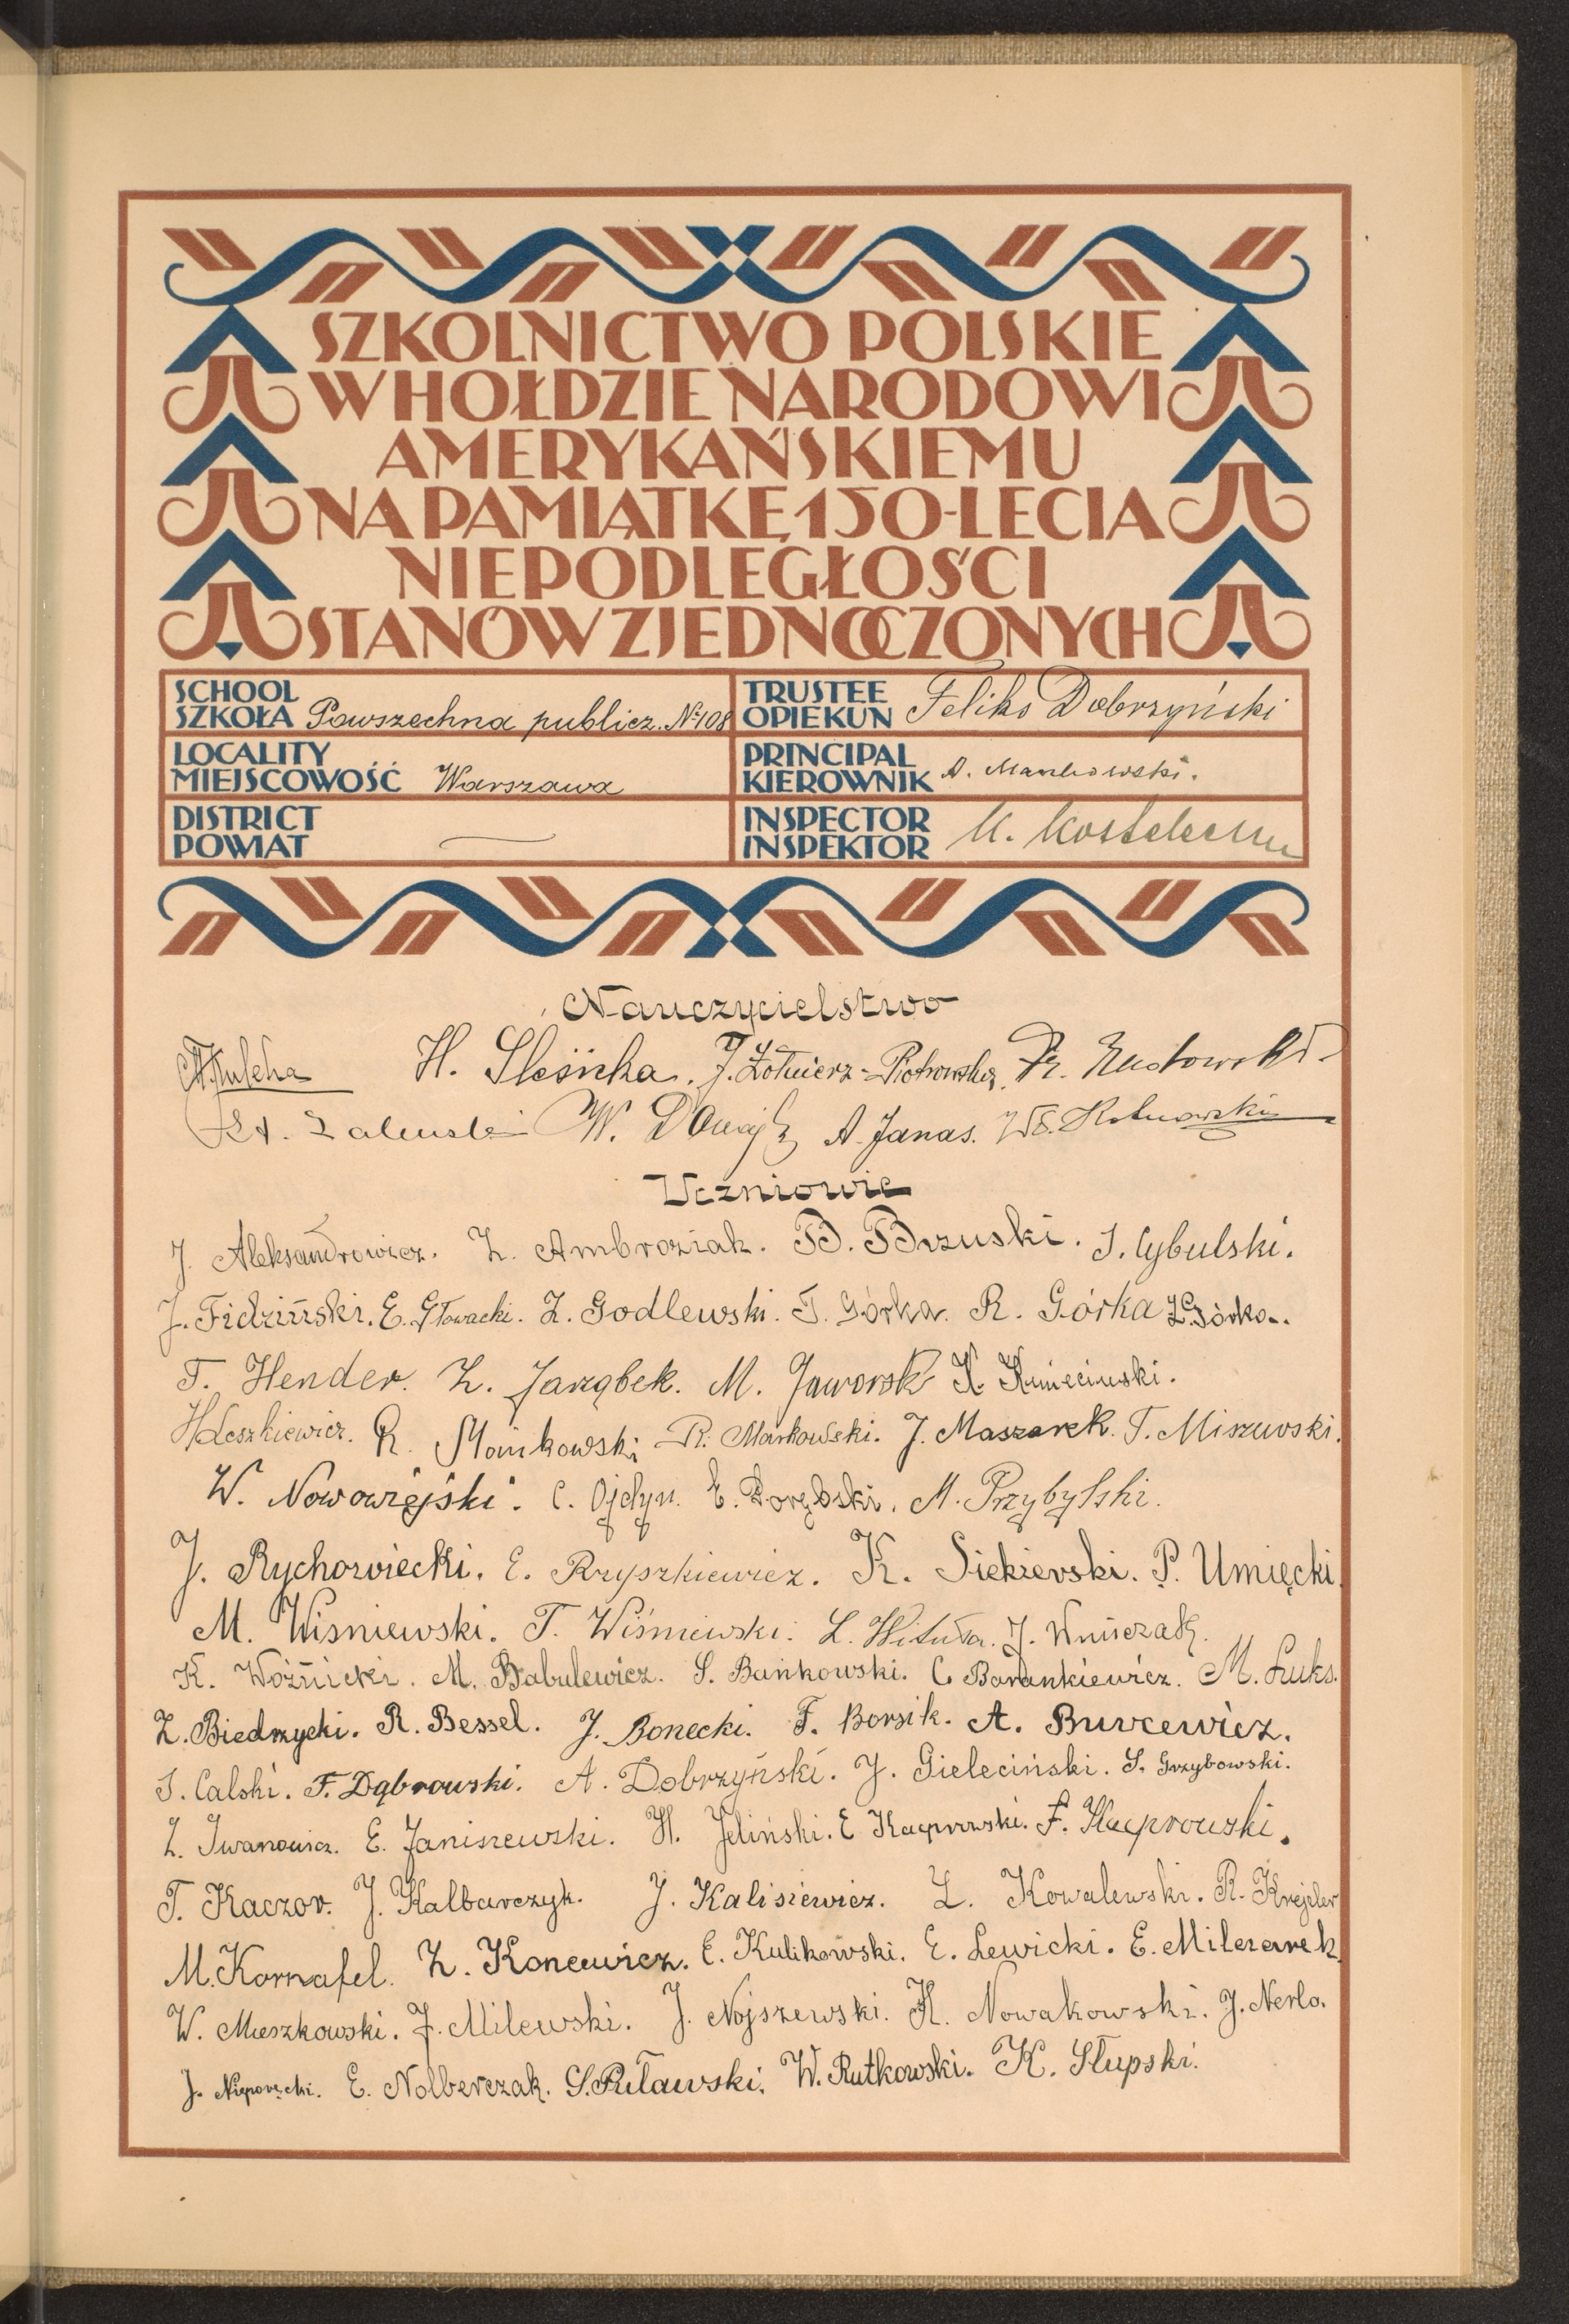 SZKOLNICTWO POLSKIE
W HOŁDZIE NARODOWI
AMERYKAŃSKIEMU
NA PAMIĄTKĘ 150-LECIA
NIEPODLEGŁOŚCI
STANÓW ZJEDNOCZONYCH
SCHOOL
SZKOŁA Powszechna publicz. № 108
TRUSTEE
OPIEKUN Feliks Dobrzyński
LOCALITY
MIEJSCOWOŚĆ Warszawa
PRINCIPAL
KIEROWNIK A. Mankowski.
DISTRICT
POWIAT
INSPECTOR
INSPEKTOR
Nauczycielstwo
H. Sleśicka. J. Żołnierz-Piotrowska. Fr.
St. Zaleuski W. A. Janas. Wł.
Uczniowie
J. Aleksandrowicz. Z. Ambroziak. B. Brzuski. J. Cybulski.
J. Fidziński. E. Głowacki. Z. Godlewski. T. Górka. R. Górka Z. Górka.
T. Hender. Z. Jarząbek. M. Jaworski K. Kmieciński.
H. Leszkiewicz. R. Mańkowski R. Markowski. J. Maszarek. T. Miszewski.
W. Nowowiejski. C. Ojdyn. E. Porębski. M. Przybylski.
J. Rychowiecki. E. Rzyszkiewicz. K. Siekierski. P. Umięcki.
M. Wisniewski. T. Wiśniewski. L. Wituła. J. Wniczak.
K. Woźnicki. M. Babulewicz. S. Bańkowski. C Barankiewicz. M. Łuks.
Z. Biedrzycki. R. Bessel. J. Bonecki. F. Borsik. A. Burcewicz.
J. Calski. F. Dąbrowski. A. Dobrzyński. J. Gieleciński. S. Grzybowski.
Z. Iwanowicz. E. Janiszewski. H. Jeliński. E Kacprowski. F. Kacprowski.
T. Kaczor. J. Kalbarczyk. J. Kalisiewicz. Z. Kowalewski. R. Krejcler
M. Kornafel. Z. Koncewicz. E. Kulikowski. E. Lewicki. E. Milczarek
W. Mieszkowski. J. Milewski. J. Nojszewski. K. Nowakowski. J. Nerlo.
J. Nieporęcki. E. Nolberczak. S. Puławski. W. Rutkowski. K. Słupski.